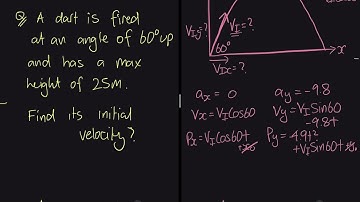 Q A dart is fired
at an angle of 60° up
and has a max
height of 25m.
Find its initial
velocity?
V_Iy=?
V_I=?
60°
x
V_Ix=?
a_x = 0
a_y = -9.8
V_x = V_I Cos60
V_y = V_I Sin60
-9.8t
P_x = V_I Cos60t
P_y = 4.9t²
+V_I Sin60t